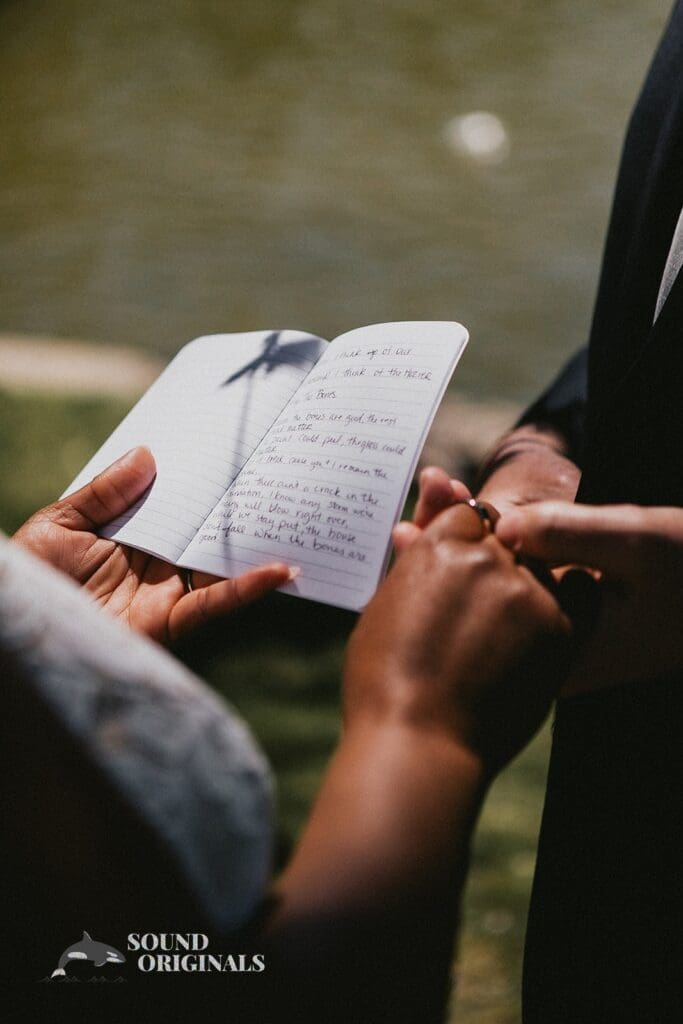 think of our
I think of the MAREN
the Bones
the bones are good, the rest
matter
could peel, the glass could
cause you & I remain the
there ain't a crack in the
foundation, I know any storm we're
will blow right over,
we stay put, the house
fall when the bones are
good
SOUND
ORIGINALS